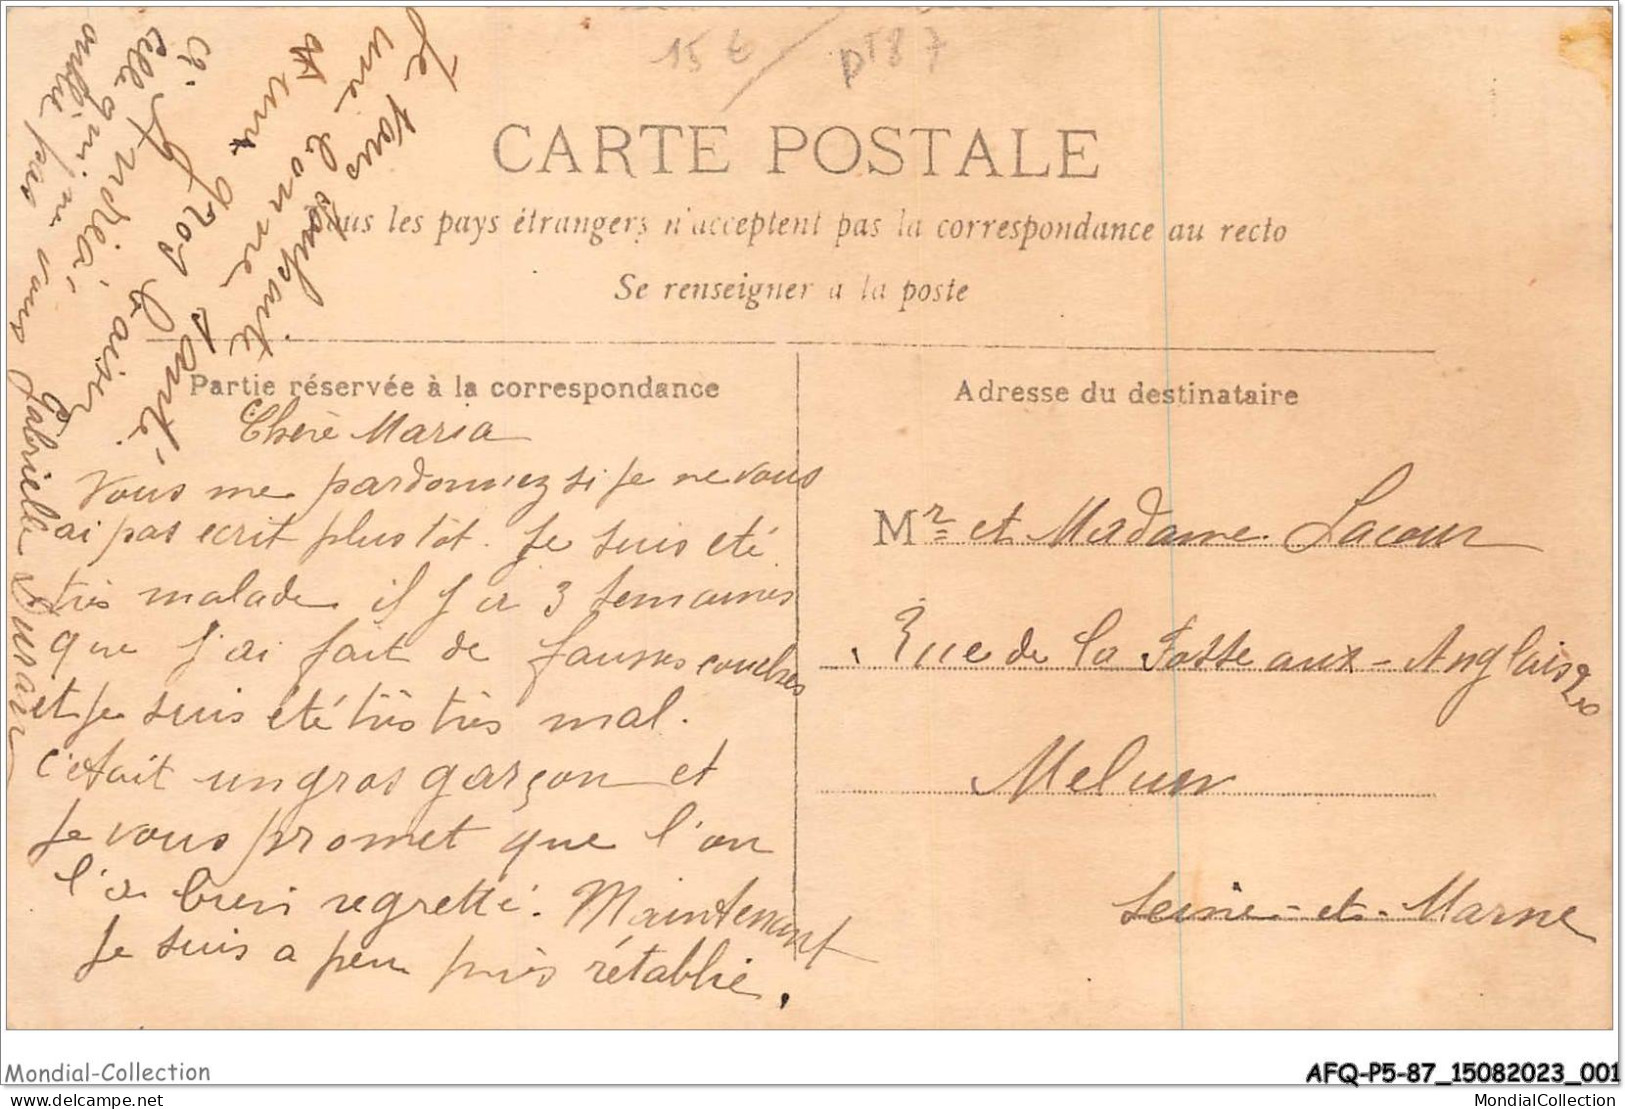 15 €
DT87
CARTE POSTALE
Tous les pays étrangers n'acceptent pas la correspondance au recto
Se renseigner a la poste
Partie réservée à la correspondance
Adresse du destinataire
Chère Maria
Vous me pardonnez si je ne vous
ai pas ecrit plus tôt. Je suis été
très malade il y a 3 semaines
que j'ai fait de fausses couches
et je suis été très très mal.
c'etait un gros garçon et
je vous promet que l'on
l'a bien regretté. Maintenant
je suis a peu près rétablie.
Je vous souhaite
une bonne
et une santé
gros baiser
Celle qui ne vous
oublie pas
Gabrielle Duran
Mr et Madame Lacour
Rue de la Fosse aux Anglais 20
Melun
Seine-et-Marne
Mondial-Collection
AFQ-P5-87_15082023_001
delcampe.net
MondialCollection